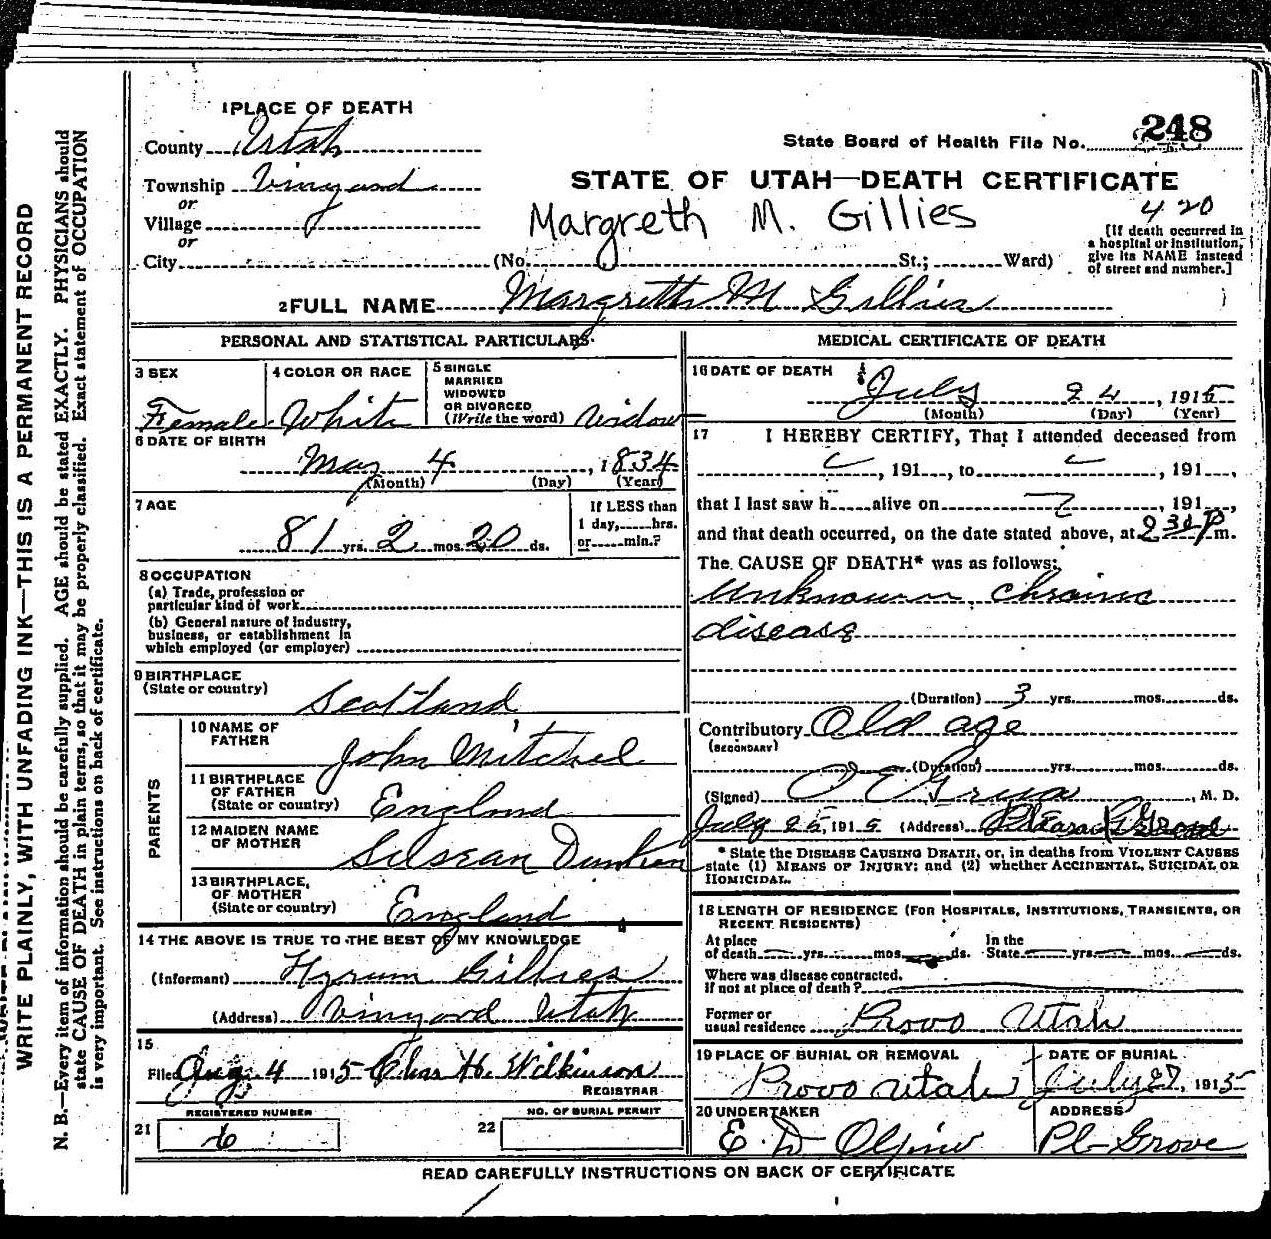 WRITE PLAINLY, WITH UNFADING INK—THIS IS A PERMANENT RECORD
N. B.—Every item of information should be carefully supplied. AGE should be stated EXACTLY. PHYSICIANS should
state CAUSE OF DEATH in plain terms, so that it may be properly classified. Exact statement of OCCUPATION
is very important. See instructions on back of certificate.
1 PLACE OF DEATH
County Utah
State Board of Health File No. 248
Township Vinyard
or
STATE OF UTAH—DEATH CERTIFICATE
Village
or
Margreth M. Gillies
420
[If death occurred in
a hospital or institution,
give its NAME instead
of street and number.]
City (No. St.; Ward)
2 FULL NAME Margreth M Gillies
PERSONAL AND STATISTICAL PARTICULARS
3 SEX
Female
4 COLOR OR RACE
White
5 SINGLE
MARRIED
WIDOWED
OR DIVORCED
(Write the word) Widow
6 DATE OF BIRTH
May 4, 1834
(Month) (Day) (Year)
7 AGE
81 yrs. 2 mos. 20 ds.
If LESS than
1 day, hrs.
or min.?
8 OCCUPATION
(a) Trade, profession or
particular kind of work
(b) General nature of Industry,
business, or establishment in
which employed (or employer)
9 BIRTHPLACE
(State or country) Scotland
PARENTS
10 NAME OF
FATHER John Mitchel
11 BIRTHPLACE
OF FATHER
(State or country) England
12 MAIDEN NAME
OF MOTHER
13 BIRTHPLACE,
OF MOTHER
(State or country) England
14 THE ABOVE IS TRUE TO THE BEST OF MY KNOWLEDGE
(Informant) Hyrum Gillies
(Address) Vinyard Utah
15
Filed Aug. 4 1915 Chas H. Wilkinson
REGISTRAR
REGISTERED NUMBER
21 6
NO. OF BURIAL PERMIT
22
MEDICAL CERTIFICATE OF DEATH
16 DATE OF DEATH
July 24, 1915
(Month) (Day) (Year)
17 I HEREBY CERTIFY, That I attended deceased from
, 191 , to , 191 ,
that I last saw h alive on , 191 ,
and that death occurred, on the date stated above, at 2 30 P m.
The CAUSE OF DEATH* was as follows:
Unknown chronic
disease
(Duration) 3 yrs. mos. ds.
Contributory Old age
(SECONDARY)
(Duration) yrs. mos. ds.
(Signed) O E Grua, M. D.
July 25, 1915 (Address) Grove
* State the DISEASE CAUSING DEATH, or, in deaths from VIOLENT CAUSES
state (1) MEANS OF INJURY; and (2) whether ACCIDENTAL, SUICIDAL OR
HOMICIDAL.
18 LENGTH OF RESIDENCE (FOR HOSPITALS, INSTITUTIONS, TRANSIENTS, OR
RECENT RESIDENTS)
At place
of death yrs. mos. ds.
In the
State yrs. mos. ds.
Where was disease contracted.
If not at place of death?
Former or
usual residence Provo Utah
19 PLACE OF BURIAL OR REMOVAL
Provo Utah
DATE OF BURIAL
July 27, 1915
20 UNDERTAKER
E. D Olpin
ADDRESS
Pl- Grove
READ CAREFULLY INSTRUCTIONS ON BACK OF CERTIFICATE